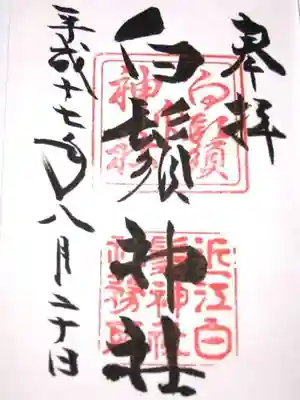 奉拝
白鬚神社
平成十七年八月二十日
白鬚
神社
近江白
鬚神社
社務所